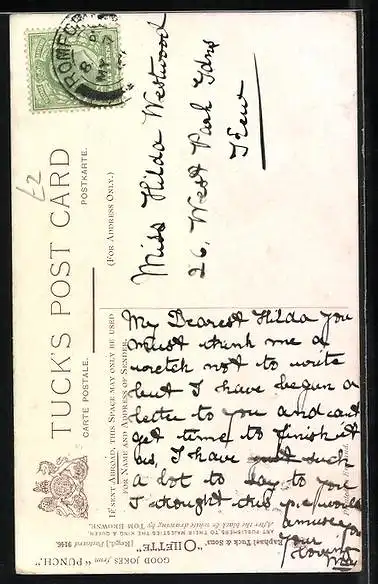 ROMFORD
8 PM
MY
£2
TUCK'S POST CARD
CARTE POSTALE.
POSTKARTE.
(FOR ADDRESS ONLY.)
Miss Hilda Westwood
26, West Park Gdns
Kew
(IF SENT ABROAD, THIS SPACE MAY ONLY BE USED
FOR NAME AND ADDRESS OF SENDER.
My Dearest Hilda you
must think me a
wretch not to write
but I have begun a
letter to you and can't
get time to finish it
as, I have such
a lot to say to you
I thought this p.c. would
amuse you
Your
loving
May
GOOD JOKES from "PUNCH."
"OILETTE" [Regd.] Postcard 9166.
Raphael Tuck & Sons'
ART PUBLISHERS TO THEIR MAJESTIES THE KING & QUEEN.
After the black & white drawing by TOM BROWNE.